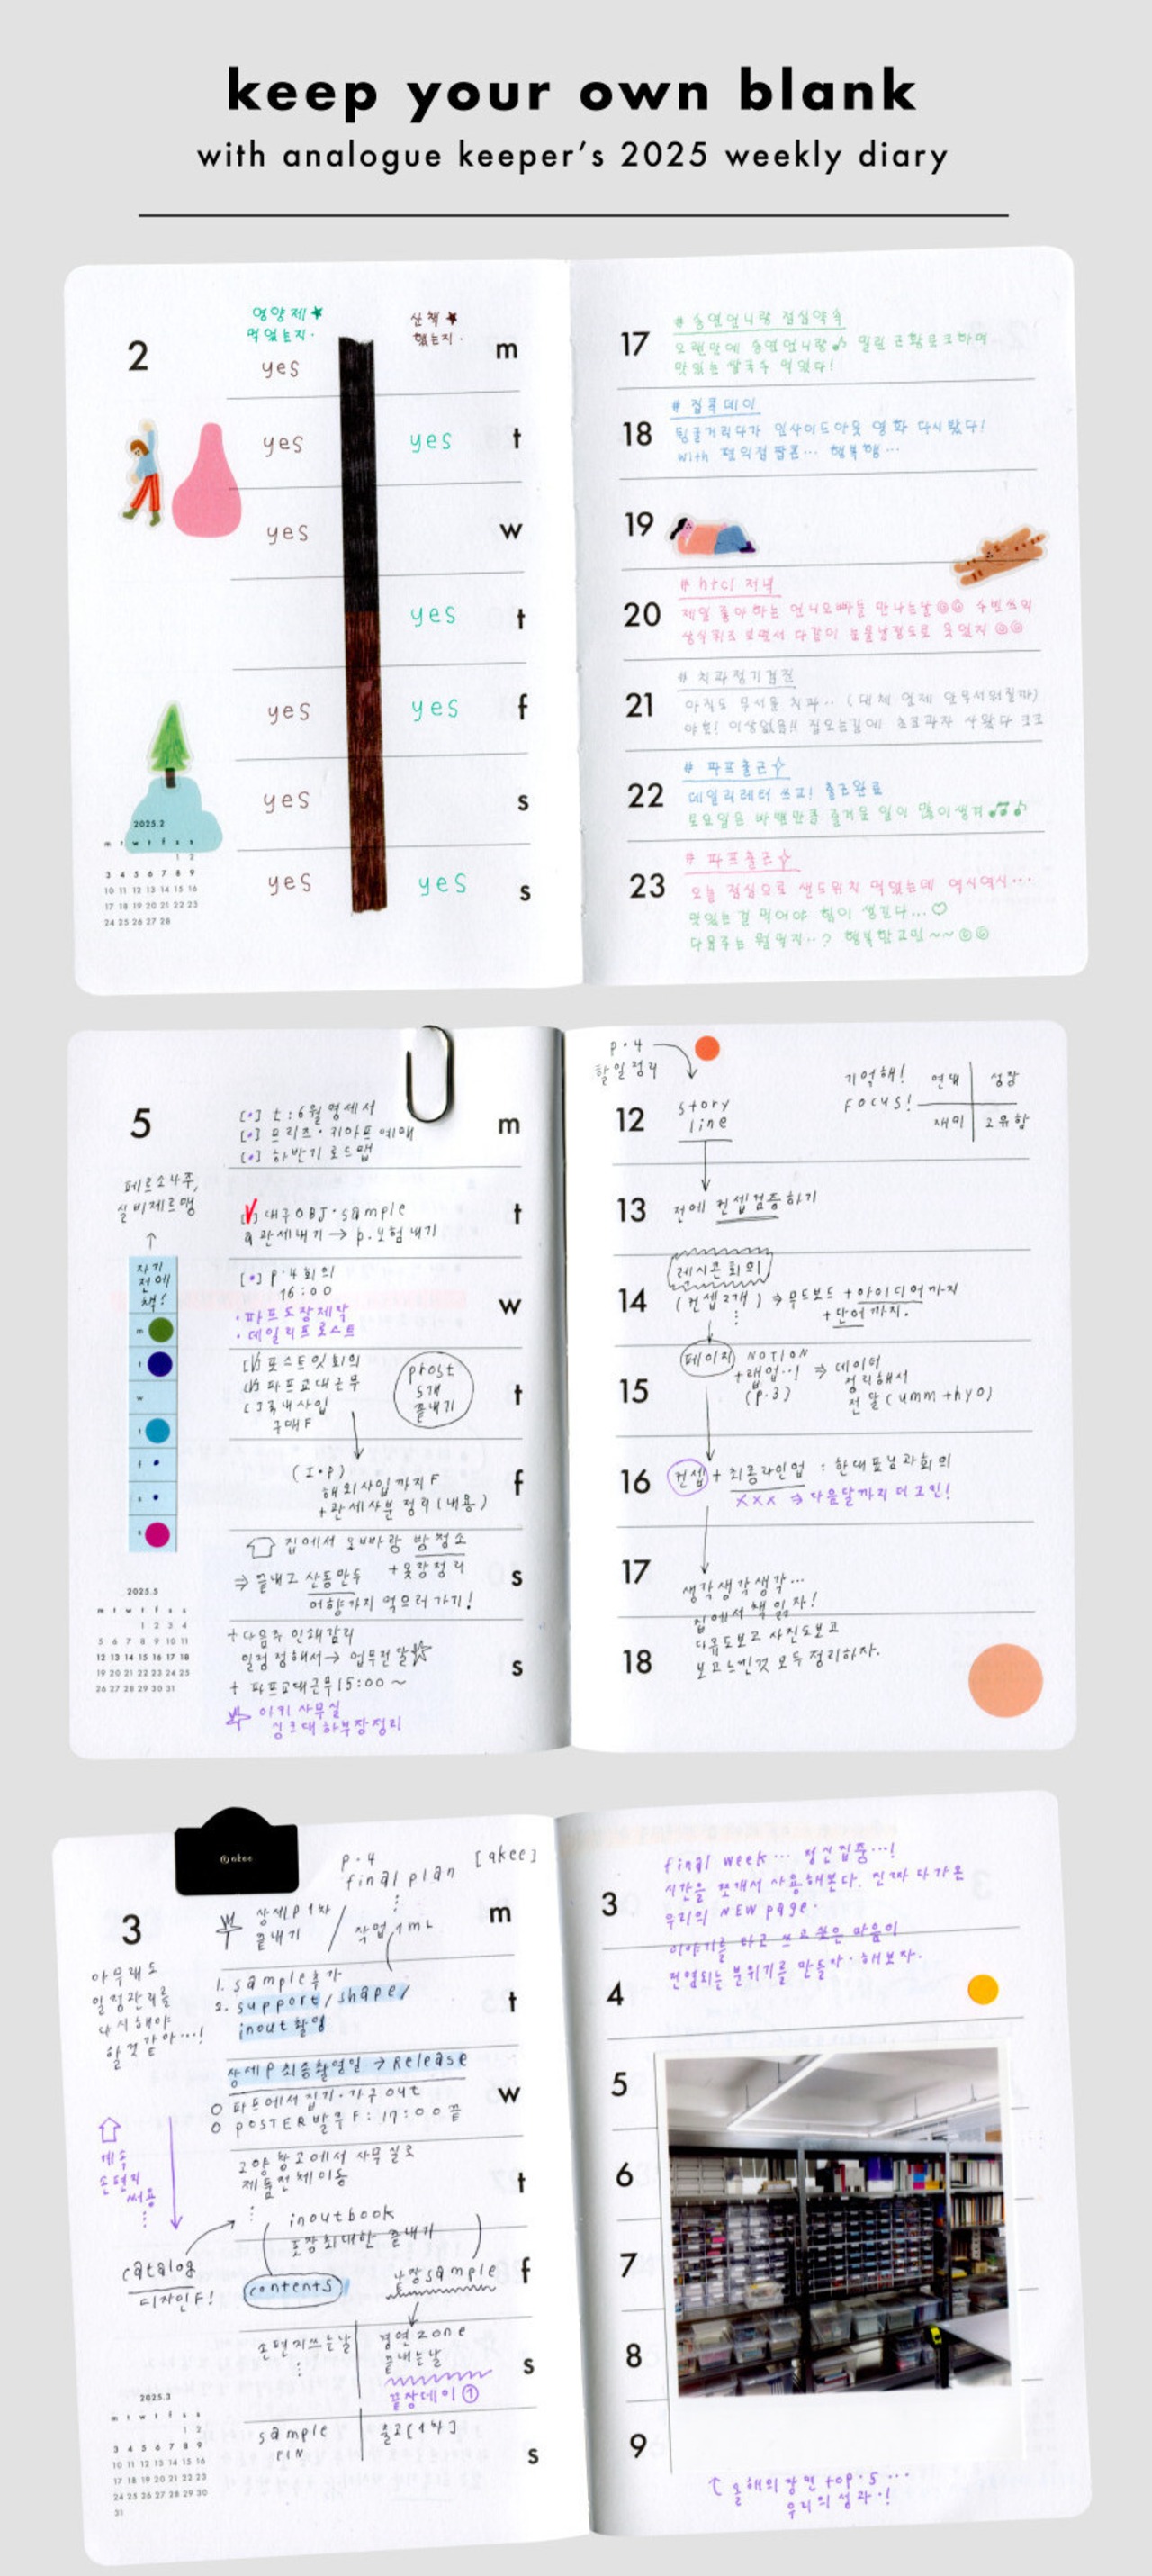 keep your own blank
with analogue keeper's 2025 weekly diary
2
영양제★
먹었는지.
산책★
했는지.
yes
m
yes
yes
t
yes
w
yes
t
yes
yes
f
yes
s
yes
yes
s
2025.2
m t w t f s s
1 2
3 4 5 6 7 8 9
10 11 12 13 14 15 16
17 18 19 20 21 22 23
24 25 26 27 28
17
# 송연언니랑 점심약속
오랜만에 송연언니랑♪ 밀린 근황토크하며
맛있는 쌀국수 먹었다!
18
# 집콕데이
뒹굴거리다가 인사이드아웃 영화 다시봤다!
with 편의점 팝콘… 행복행…
19
20
# htcl 저녁
제일 좋아하는 언니오빠들 만나는날
상식퀴즈 보면서 다같이 눈물날정도로 웃었지
21
# 치과정기검진
아직도 무서운 치과.. (대체 언제 안무서워질까)
야호! 이상없음!! 집오는길에 초코과자 사왔다 ㅋㅋㅋ
22
# 파프출근
데일리레터 쓰고! 출근완료
토요일은 바쁜만큼 즐거운 일이 많이생겨
23
# 파프출근
오늘 점심으로 샌드위치 먹었는데 역시역시…
맛있는걸 먹어야 힘이 생긴다…♡
다음주는 뭘먹지..? 행복한고민~~
5
[•] t:6월명세서
[•] 프리즈·키아프 예매
[•] 하반기로드맵
m
페르소나주,
실비제르맹
↑
자기
전에
책!
m
t
w
t
f
s
s
대구OBJ·sample
관세내기 → p.보험내기
t
[•] p.4회의
16:00
• 파프도장제작
• 데일리프로스트
w
포스트잇회의
파프교대근무
[ ] 국내사입
구매F
prost
5개
끝내기
t
(I·P)
해외사입까지F
+관세사분 정리(내용)
f
집에서 오빠랑 방청소
+옷장정리
⇒ 끝내고 산동만두
어향가지 먹으러가기!
s
+다음주 인쇄감리
일정정해서→ 업무전달☆
+ 파프교대근무15:00~
아키사무실
싱크대하부장정리
s
2025.5
m t w t f s s
1 2 3 4
5 6 7 8 9 10 11
12 13 14 15 16 17 18
19 20 21 22 23 24 25
26 27 28 29 30 31
p.4
할일정리
기억해!
FOCUS!
연대
성장
재미
고유함
12
story
line
13
전에 컨셉검증하기
14
레시콘회의
(컨셉2개) ⇒ 무드보드 +아이디어까지
+단어까지.
15
페이지
NOTION
+랩업..!
(p.3)
⇒ 데이터
정리해서
전달(umm+hyo)
16
컨셉 + 최종라인업 : 한대표님과회의
XXX ⇒ 다음달까지 더고민!
17
생각생각생각…
집에서책읽자!
18
다큐도보고 사진도보고
보고느낀것 모두정리하자.
akee
p.4
final plan
[akee]
3
상세p 1차
끝내기
m
아무래도
일정관리를
다시해야
할것같아…!
1. sample추가
2. support/shape/
inout촬영
t
상세p최종촬영일 → Release
w
파프에서집기·가구out
POSTER발주F: 17:00끝
계속
손편지
써용
고양창고에서 사무실로
제품전체이동
t
inoutbook
포장최대한 끝내기
catalog
디자인F!
contents
sample
f
손편지쓰는날
경연zone
끝내는날
끝장데이①
s
sample
PIN
출고[1차]
s
2025.3
m t w t f s s
1 2
3 4 5 6 7 8 9
10 11 12 13 14 15 16
17 18 19 20 21 22 23
24 25 26 27 28 29 30
31
final week… 정신집중…!
3
시간을 쪼개서 사용해본다. 진짜 다가온
우리의 NEW page.
이야기를 하고 쓰고 싶은 마음이
4
전염되는 분위기를 만들아. 해보자.
5
6
7
8
9
올해의장면 top.5…
우리의성과.!